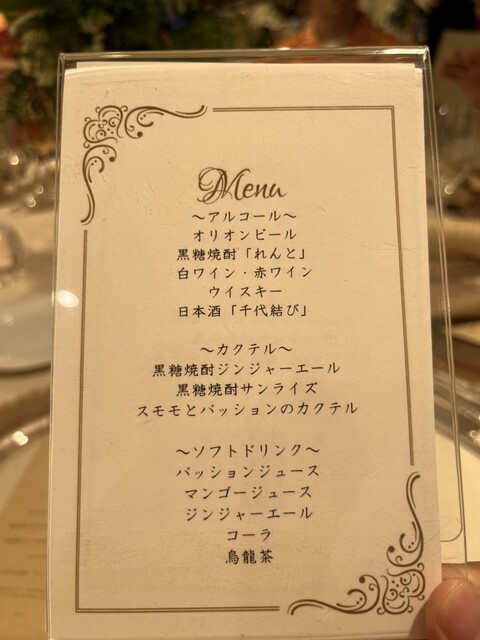 Menu
～アルコール～
オリオンビール
黒糖焼酎「れんと」
白ワイン・赤ワイン
ウイスキー
日本酒「千代結び」
～カクテル～
黒糖焼酎ジンジャーエール
黒糖焼酎サンライズ
スモモとパッションのカクテル
～ソフトドリンク～
パッションジュース
マンゴージュース
ジンジャーエール
コーラ
烏龍茶